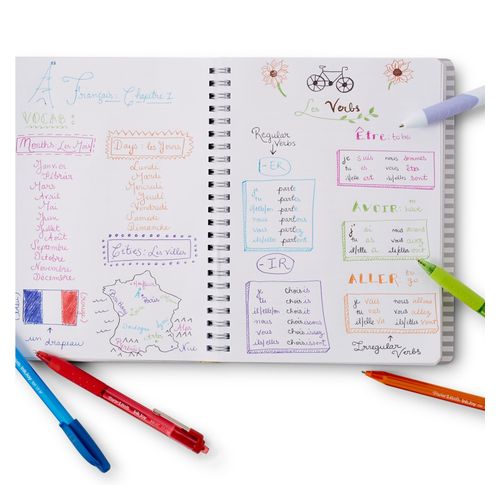 Français: Chapitre 1
VOCAB:
Months: Les Mois
Janvier
Février
Mars
Avril
Mai
Juin
Juillet
Août
Septembre
Octobre
Novembre
Décembre
Days: Les Jours
Lundi
Mardi
Mercredi
Jeudi
Vendredi
Samedi
Dimanche
Cities: Les Villes
Paris
Nice
un drapeau
Les Verbs
Regular Verbs
-ER
je parle
tu parles
il/elle/on parle
nous parlons
vous parlez
ils/elles parlent
-IR
je choisis
tu choisis
il/elle/on choisit
nous choisissons
vous choisissez
ils/elles choisissent
Être: to be
je suis nous sommes
tu es vous êtes
il/elle est ils/elles sont
AVOIR: to have
j' ai nous avons
tu as vous avez
il/elle a ils/elles ont
ALLER: to go
je vais nous allons
tu vas vous allez
il/elle va ils/elles vont
Irregular Verbs